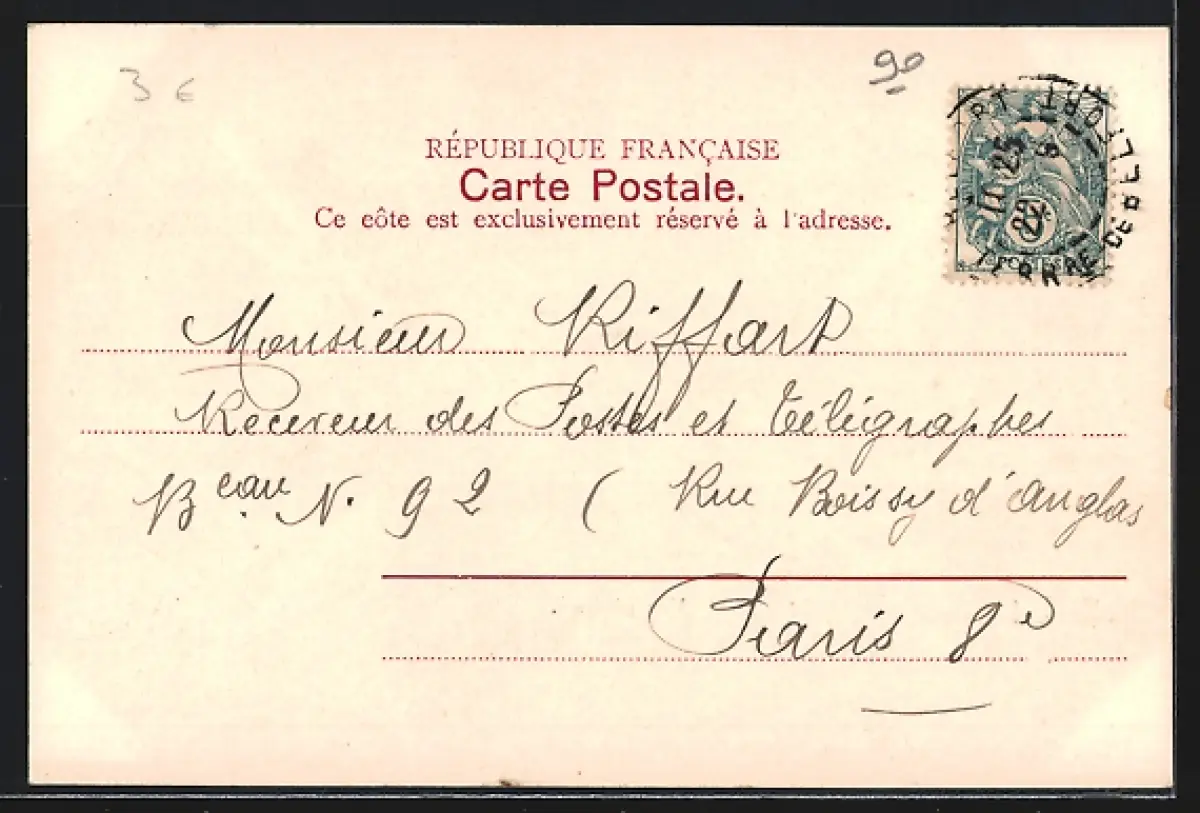 3 €
90
RÉPUBLIQUE FRANÇAISE
Carte Postale.
Ce côte est exclusivement réservé à l'adresse.
Monsieur Riffart
Receveur des Postes et Télégraphes
Beau N. 92 ( Rue Boissy d'Anglas
Paris 8e
BELFORT
11 25
POSTES